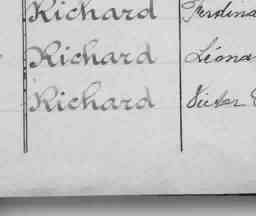 Richard Ferdina
Richard Léona
Richard Victor